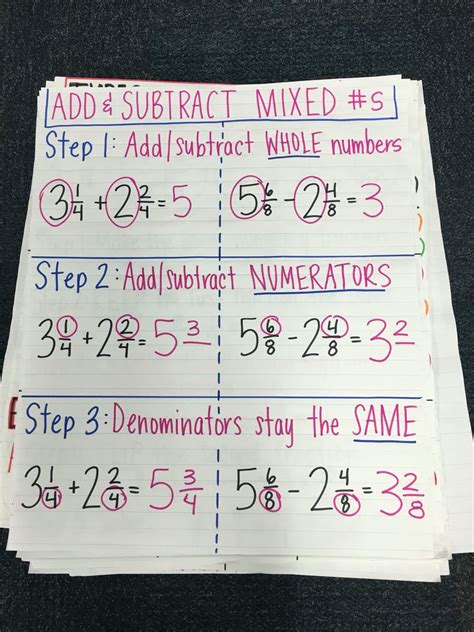 ADD & SUBTRACT MIXED #S
Step 1: Add/subtract WHOLE numbers
3 1/4 + 2 2/4 = 5 5 6/8 - 2 4/8 = 3
Step 2: Add/subtract NUMERATORS
3 1/4 + 2 2/4 = 5 3/ 5 6/8 - 2 4/8 = 3 2/
Step 3: Denominators stay the SAME
3 1/4 + 2 2/4 = 5 3/4 5 6/8 - 2 4/8 = 3 2/8